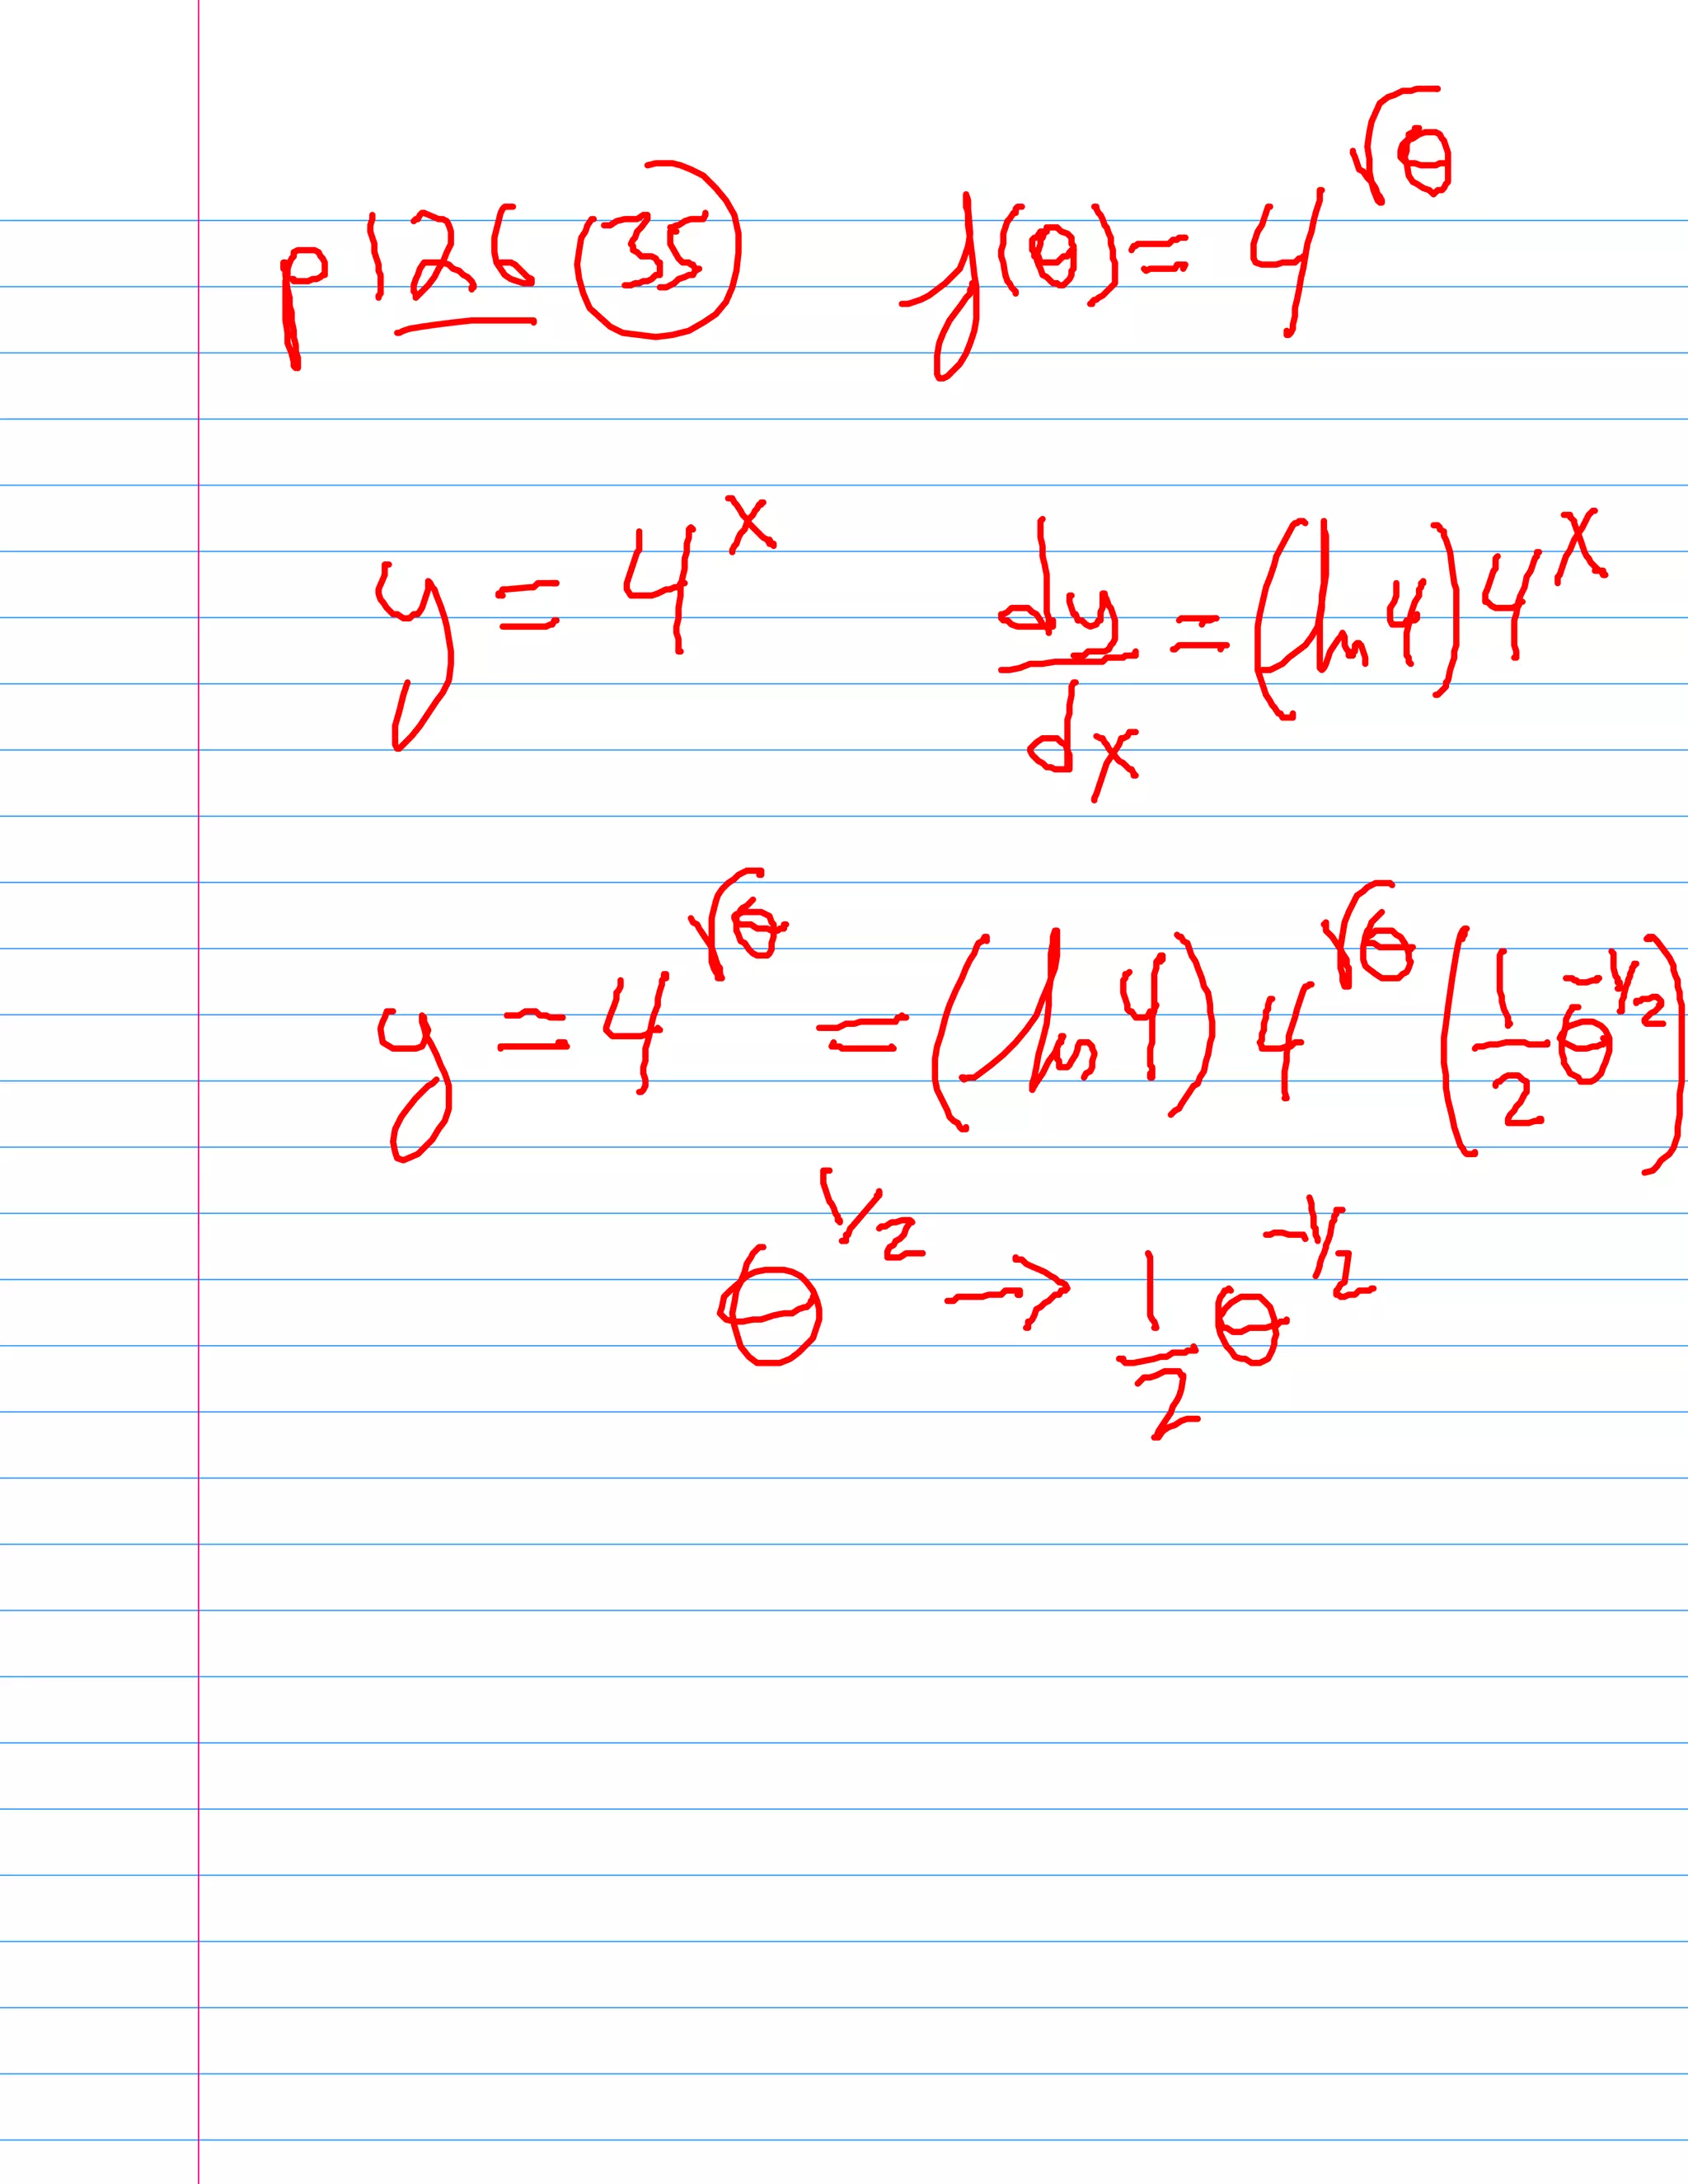 p126 (35) f(θ) = 4^√θ
y = 4^x dy/dx = (ln 4) 4^x
y = 4^√θ = (ln 4) 4^√θ (1/2 θ^-1/2)
θ^1/2 → 1/2 θ^-1/2